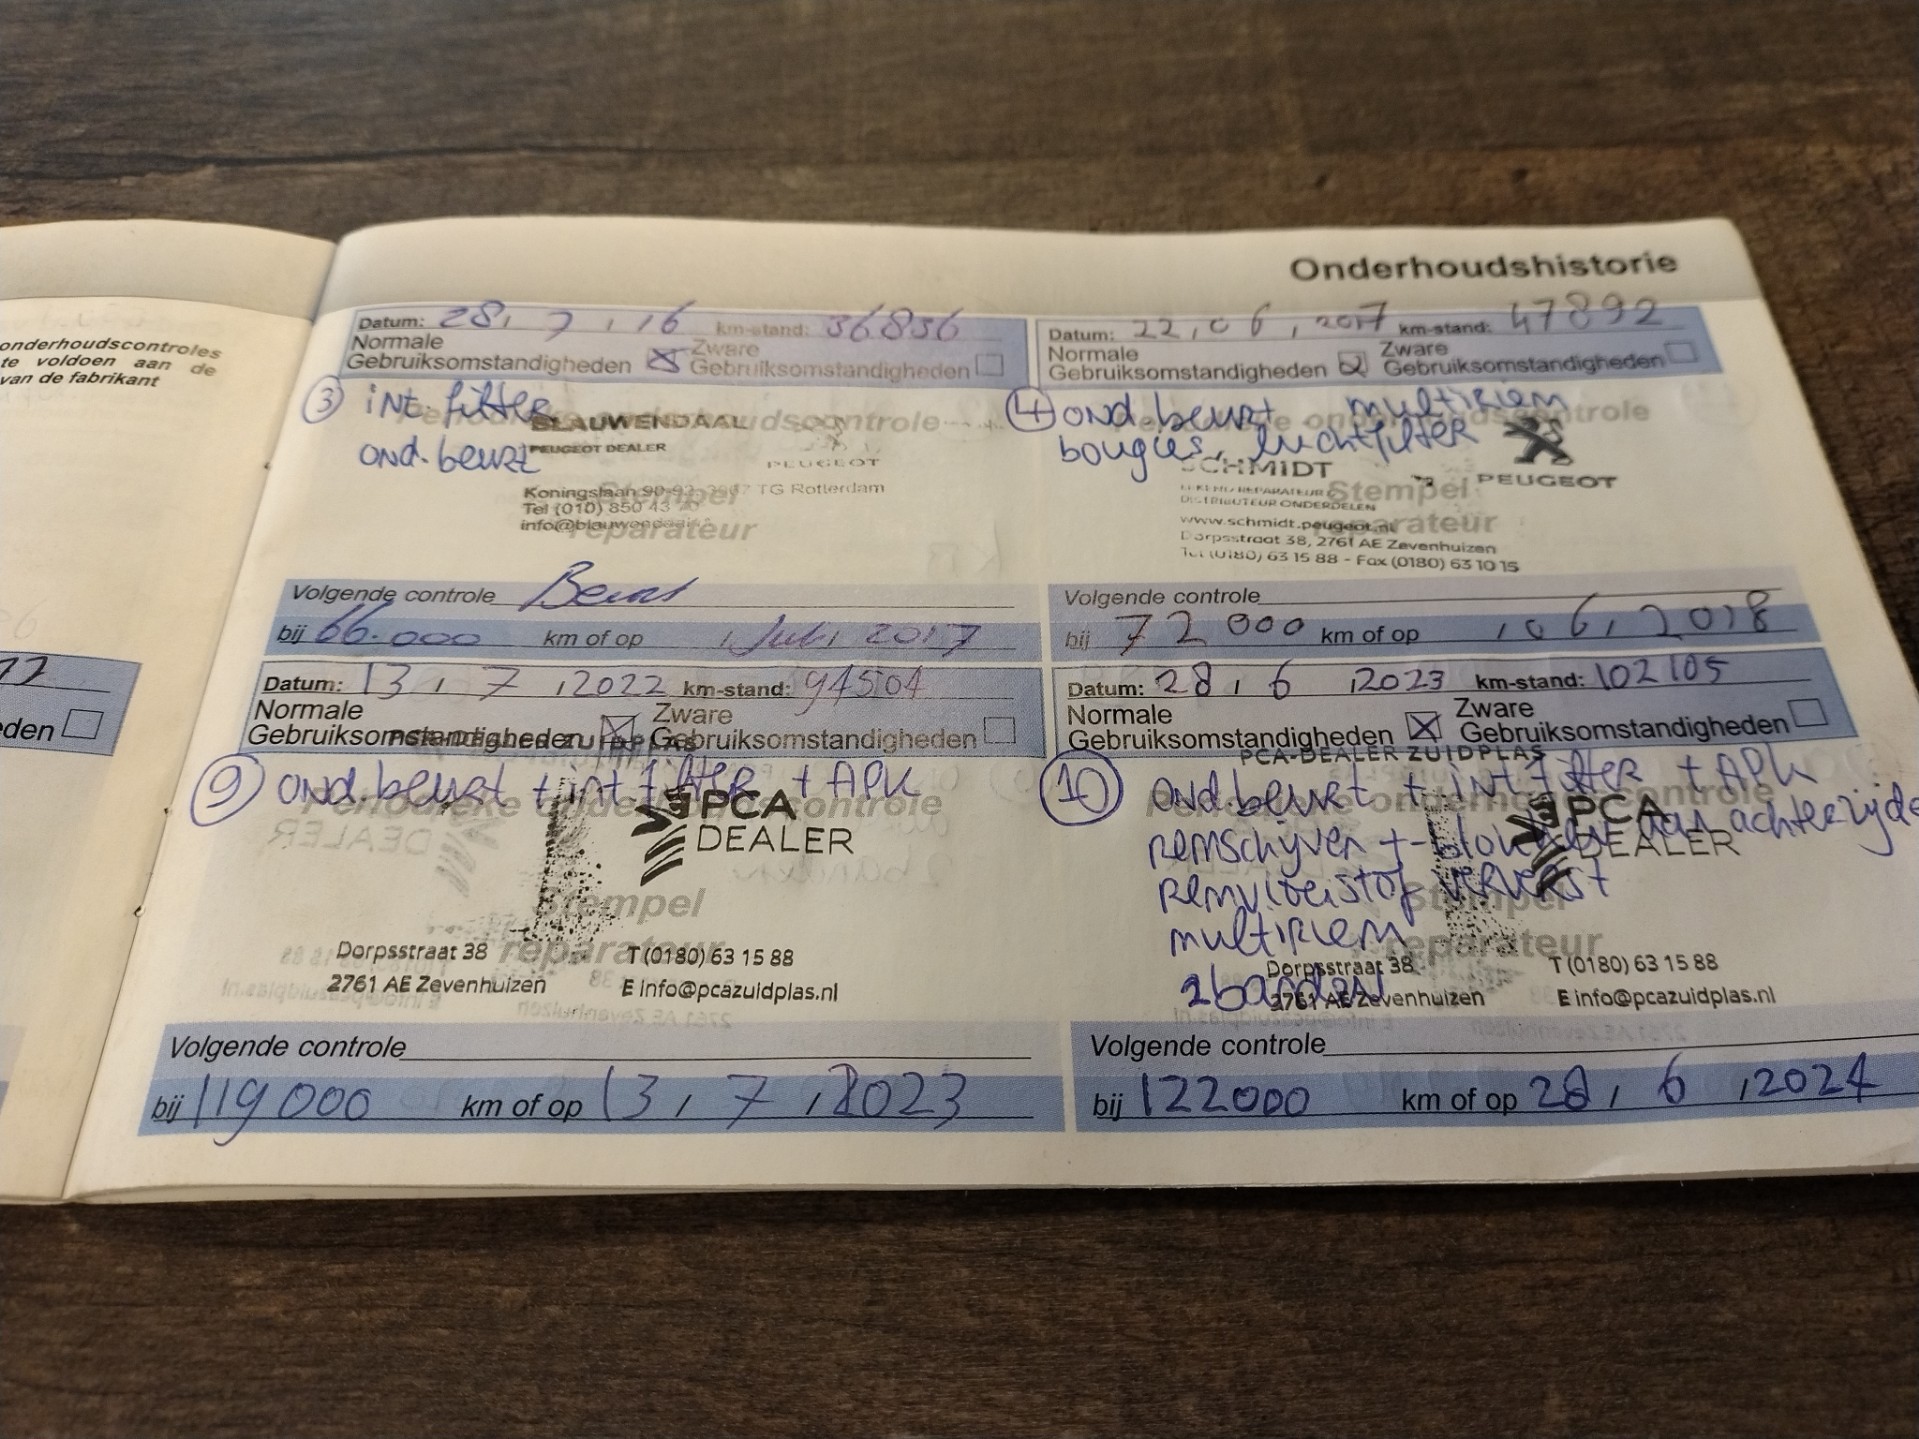 onderhoudscontroles
te voldoen aan de
van de fabrikant
Onderhoudshistorie
Datum: 28, 7, 16 km-stand: 36836
Normale Gebruiksomstandigheden Zware Gebruiksomstandigheden
3 int. filter
ond. beurt
Periodieke onderhoudscontrole
BLAUWENDAAL
PEUGEOT DEALER
PEUGEOT
Koningslaan 90-92, 3067 TG Rotterdam
Tel (010) 850 43
info@blauwendaal
Stempel
reparateur
Volgende controle Beurt
bij 66.000 km of op , Juli, 2017
Datum: 22, 06, 2017 km-stand: 47892
Normale Gebruiksomstandigheden Zware Gebruiksomstandigheden
4 ond. beurt multiriem
bougies, luchtfilter
Periodieke onderhoudscontrole
SCHMIDT
PEUGEOT
ERKEND REPARATEUR
DISTRIBUTEUR ONDERDELEN
www.schmidt.peugeot.nl
Dorpsstraat 38, 2761 AE Zevenhuizen
Tel (0180) 63 15 88 - Fax (0180) 63 10 15
Stempel
reparateur
Volgende controle
bij 72 000 km of op , 06, 2018
eden
Datum: 13, 7, 2022 km-stand: 94504
Normale Gebruiksomstandigheden Zware Gebruiksomstandigheden
PCA-DEALER ZUIDPLAS
9 ond. beurt + int filter + APK
Periodieke onderhoudscontrole
PCA
DEALER
Stempel
reparateur
Dorpsstraat 38 T (0180) 63 15 88
2761 AE Zevenhuizen E info@pcazuidplas.nl
Volgende controle
bij 119 000 km of op 13, 7, 2023
Datum: 28, 6, 2023 km-stand: 102105
Normale Gebruiksomstandigheden Zware Gebruiksomstandigheden
PCA-DEALER ZUIDPLAS
10 ond. beurt + int filter + APK
remschijven + blokken aan achterzijde
remvloeistof ververst
multiriem
2 banden
Periodieke onderhoudscontrole
PCA
DEALER
Stempel
reparateur
Dorpsstraat 38 T (0180) 63 15 88
2761 AE Zevenhuizen E info@pcazuidplas.nl
Volgende controle
bij 122000 km of op 28, 6, 2024